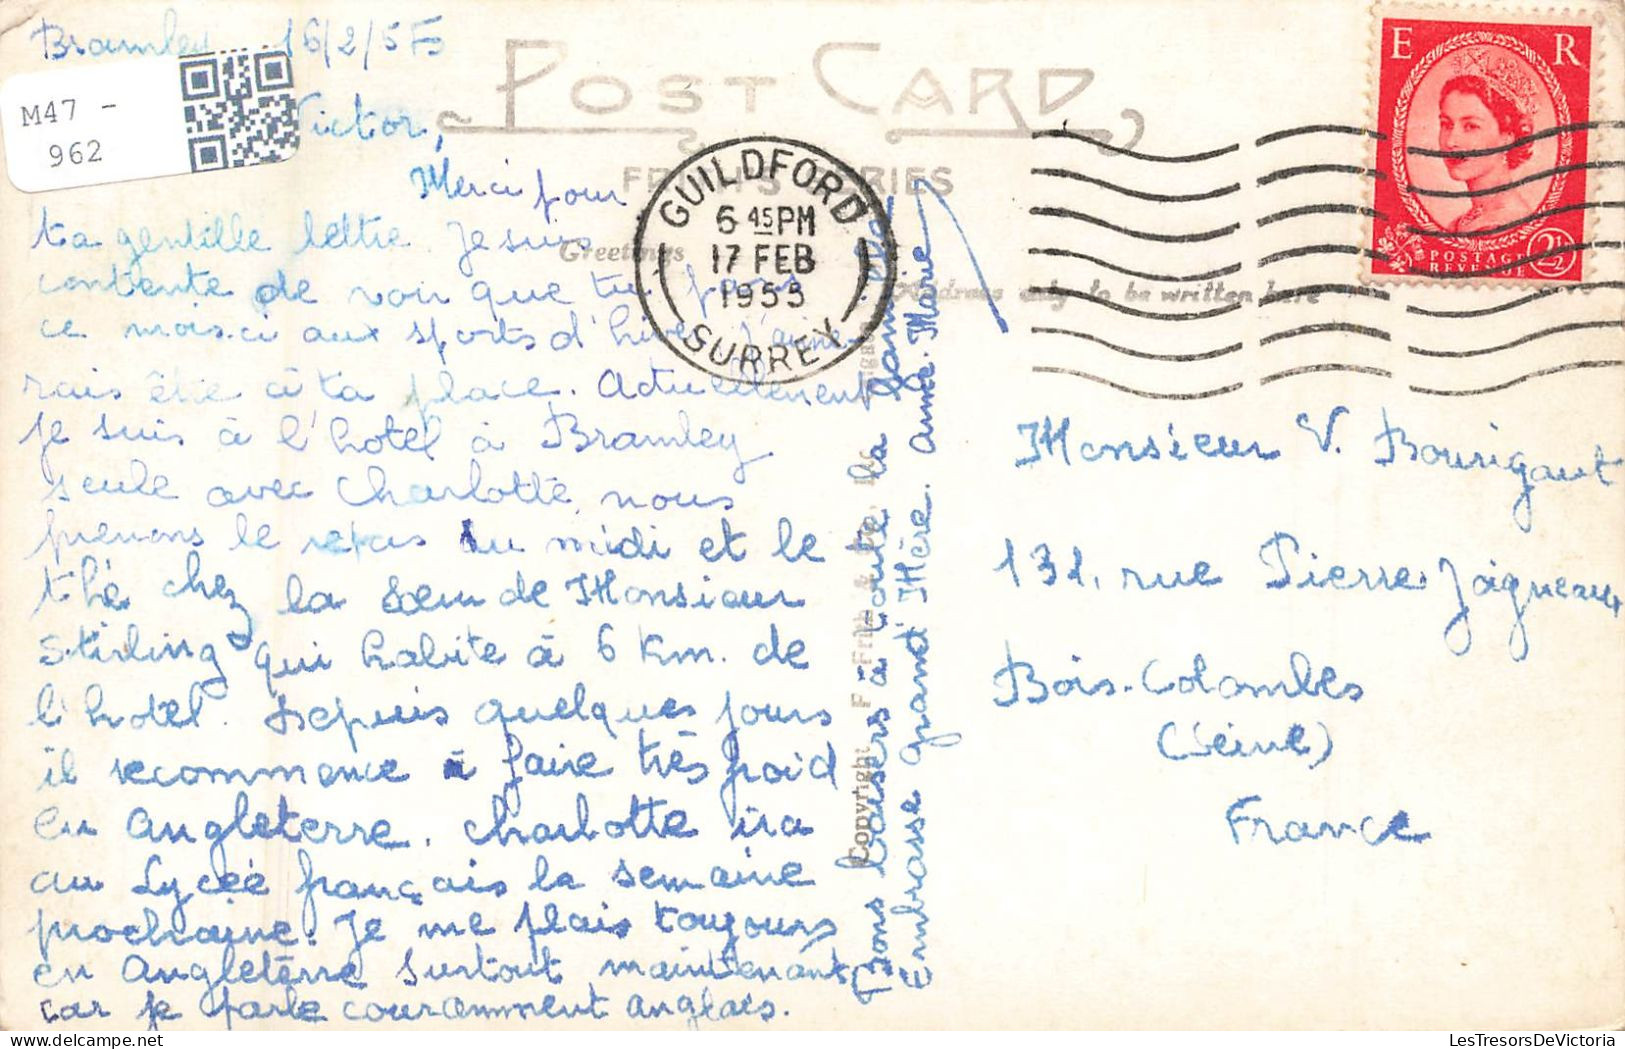 Bramley 16/2/55
M47 -
962
Victor,
POST CARD
Merci pour
ta gentille lettre. Je suis
contente de voir que tu pars
ce mois-ci aux sports d'hiver. J'aime-
rais être à ta place. Actuellement
je suis à l'hotel à Bramley
seule avec Charlotte, nous
prenons le repas du midi et le
thé chez la Soeur de Monsieur
Stirling qui habite à 6 Km. de
l'hotel. Depuis quelques jours
il recommence à faire très froid
en Angleterre. Charlotte ira
au Lycée français la semaine
prochaine. Je me plais toujours
en Angleterre surtout maintenant
car je parle couramment anglais.
Bons baisers à toute la famille
Embrasse grand'Mère. Anne-Marie
Greetings
Address only to be written here
Copyright F. Frith &
GUILDFORD
6 45 PM
17 FEB
1955
SURREY
E R
POSTAGE
REVENUE
2½
Monsieur V. Bourigaut
131, rue Pierre Joigneaux
Bois-Colombes
(Seine)
France
LesTresorsDeVictoria